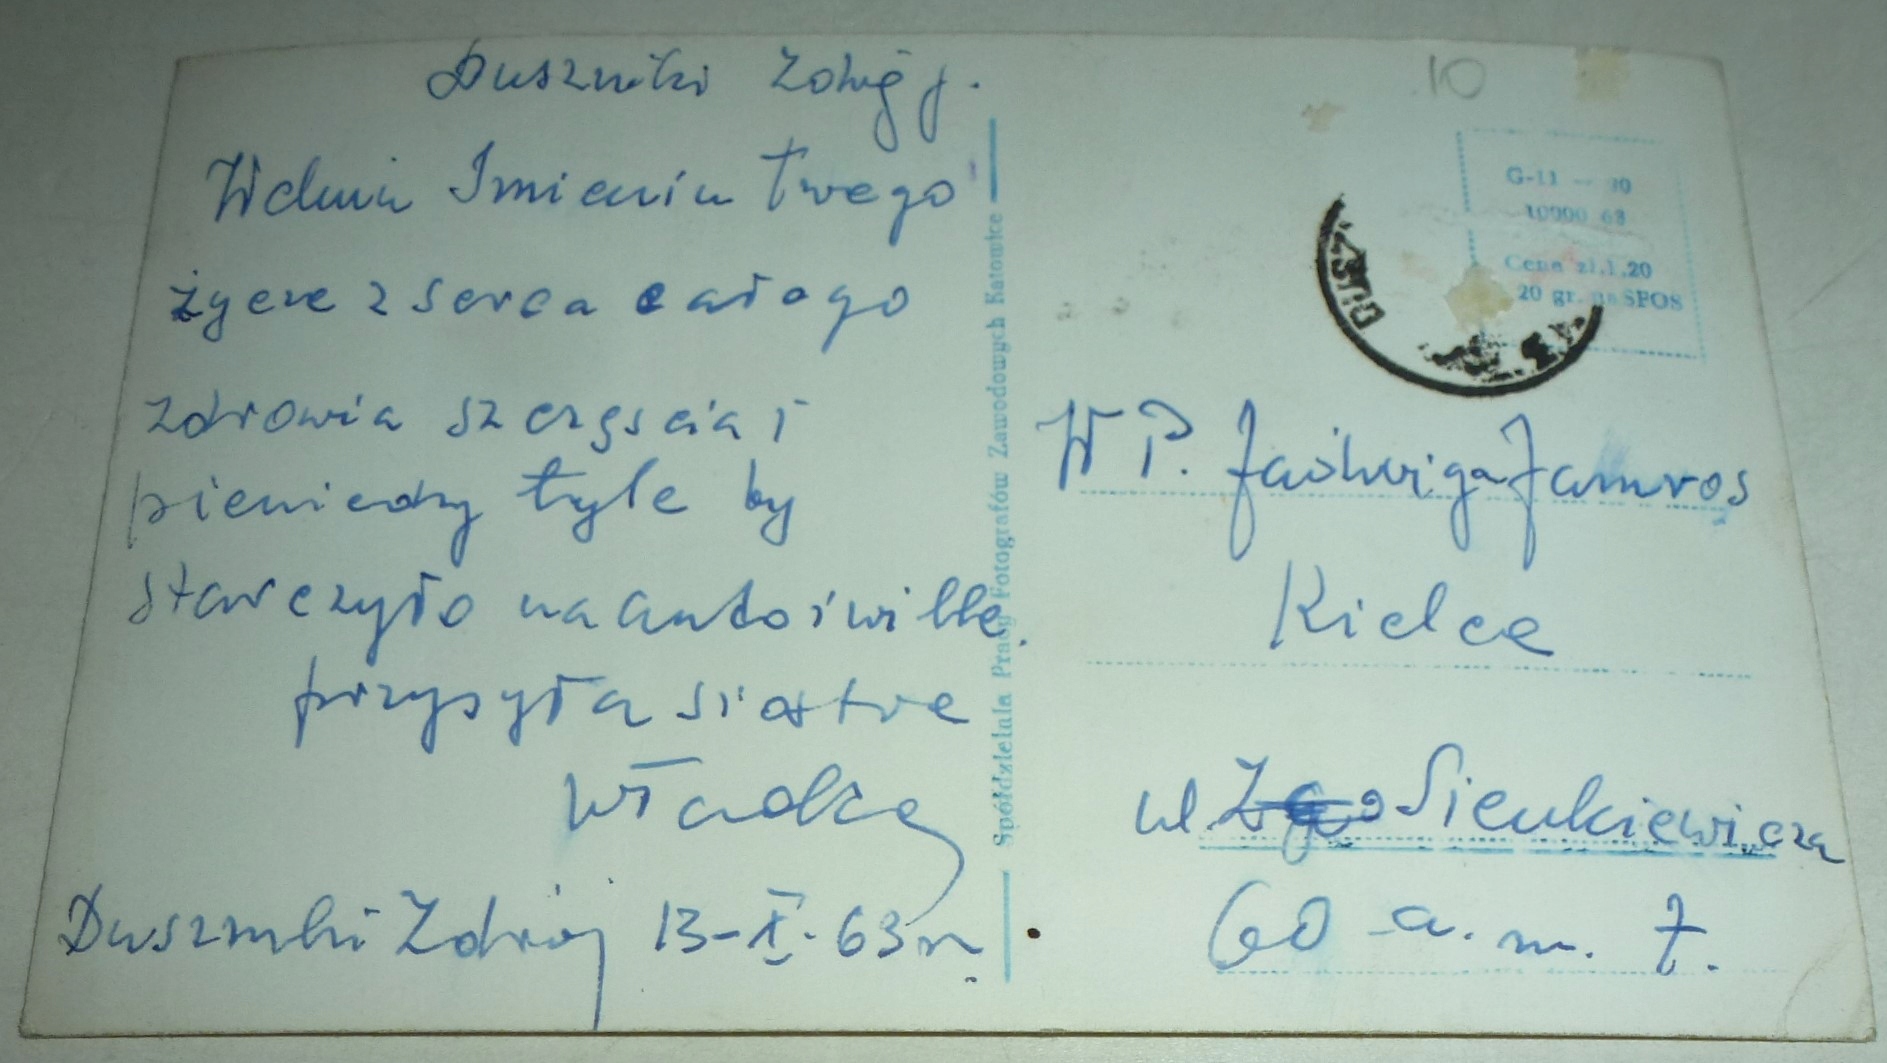 Duszniki Zdrój.
W dniu Imienin Twego
życze z serca całego
zdrowia szczęścia i
pieniedzy tyle by
starczyło na auto i wille.
przysyła siostra
Władka
Duszniki Zdrój 13-X-63 r.
Spółdzielnia Pracy Fotografów Zawodowych Katowice
10
G-11 — 30
10000 63
Cena zł.1.20
20 gr. na SFOS
DUSZ
W P. Jadwiga Jamros
Kielce
ul Sienkiewicza
60 a. m. 7.